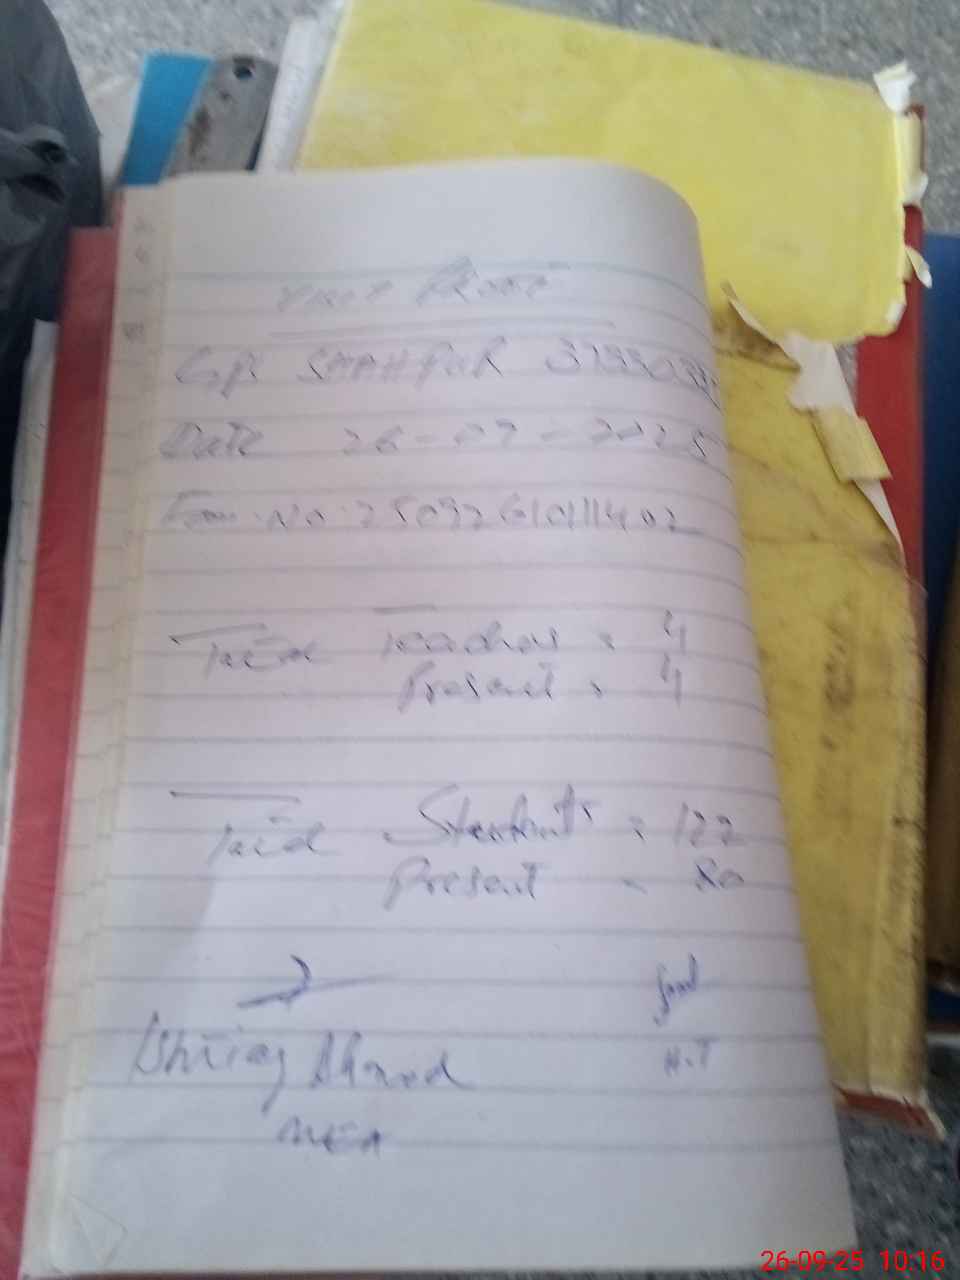 Visit Proof
GPS SHAHPUR
Date 26-09-2025
Form No. 25092610111402
Total Teachers = 4
Present = 4
Total Students = 122
Present = 80
Ishtiaq Ahmed
MEA
H.T
26-09-25 10:16